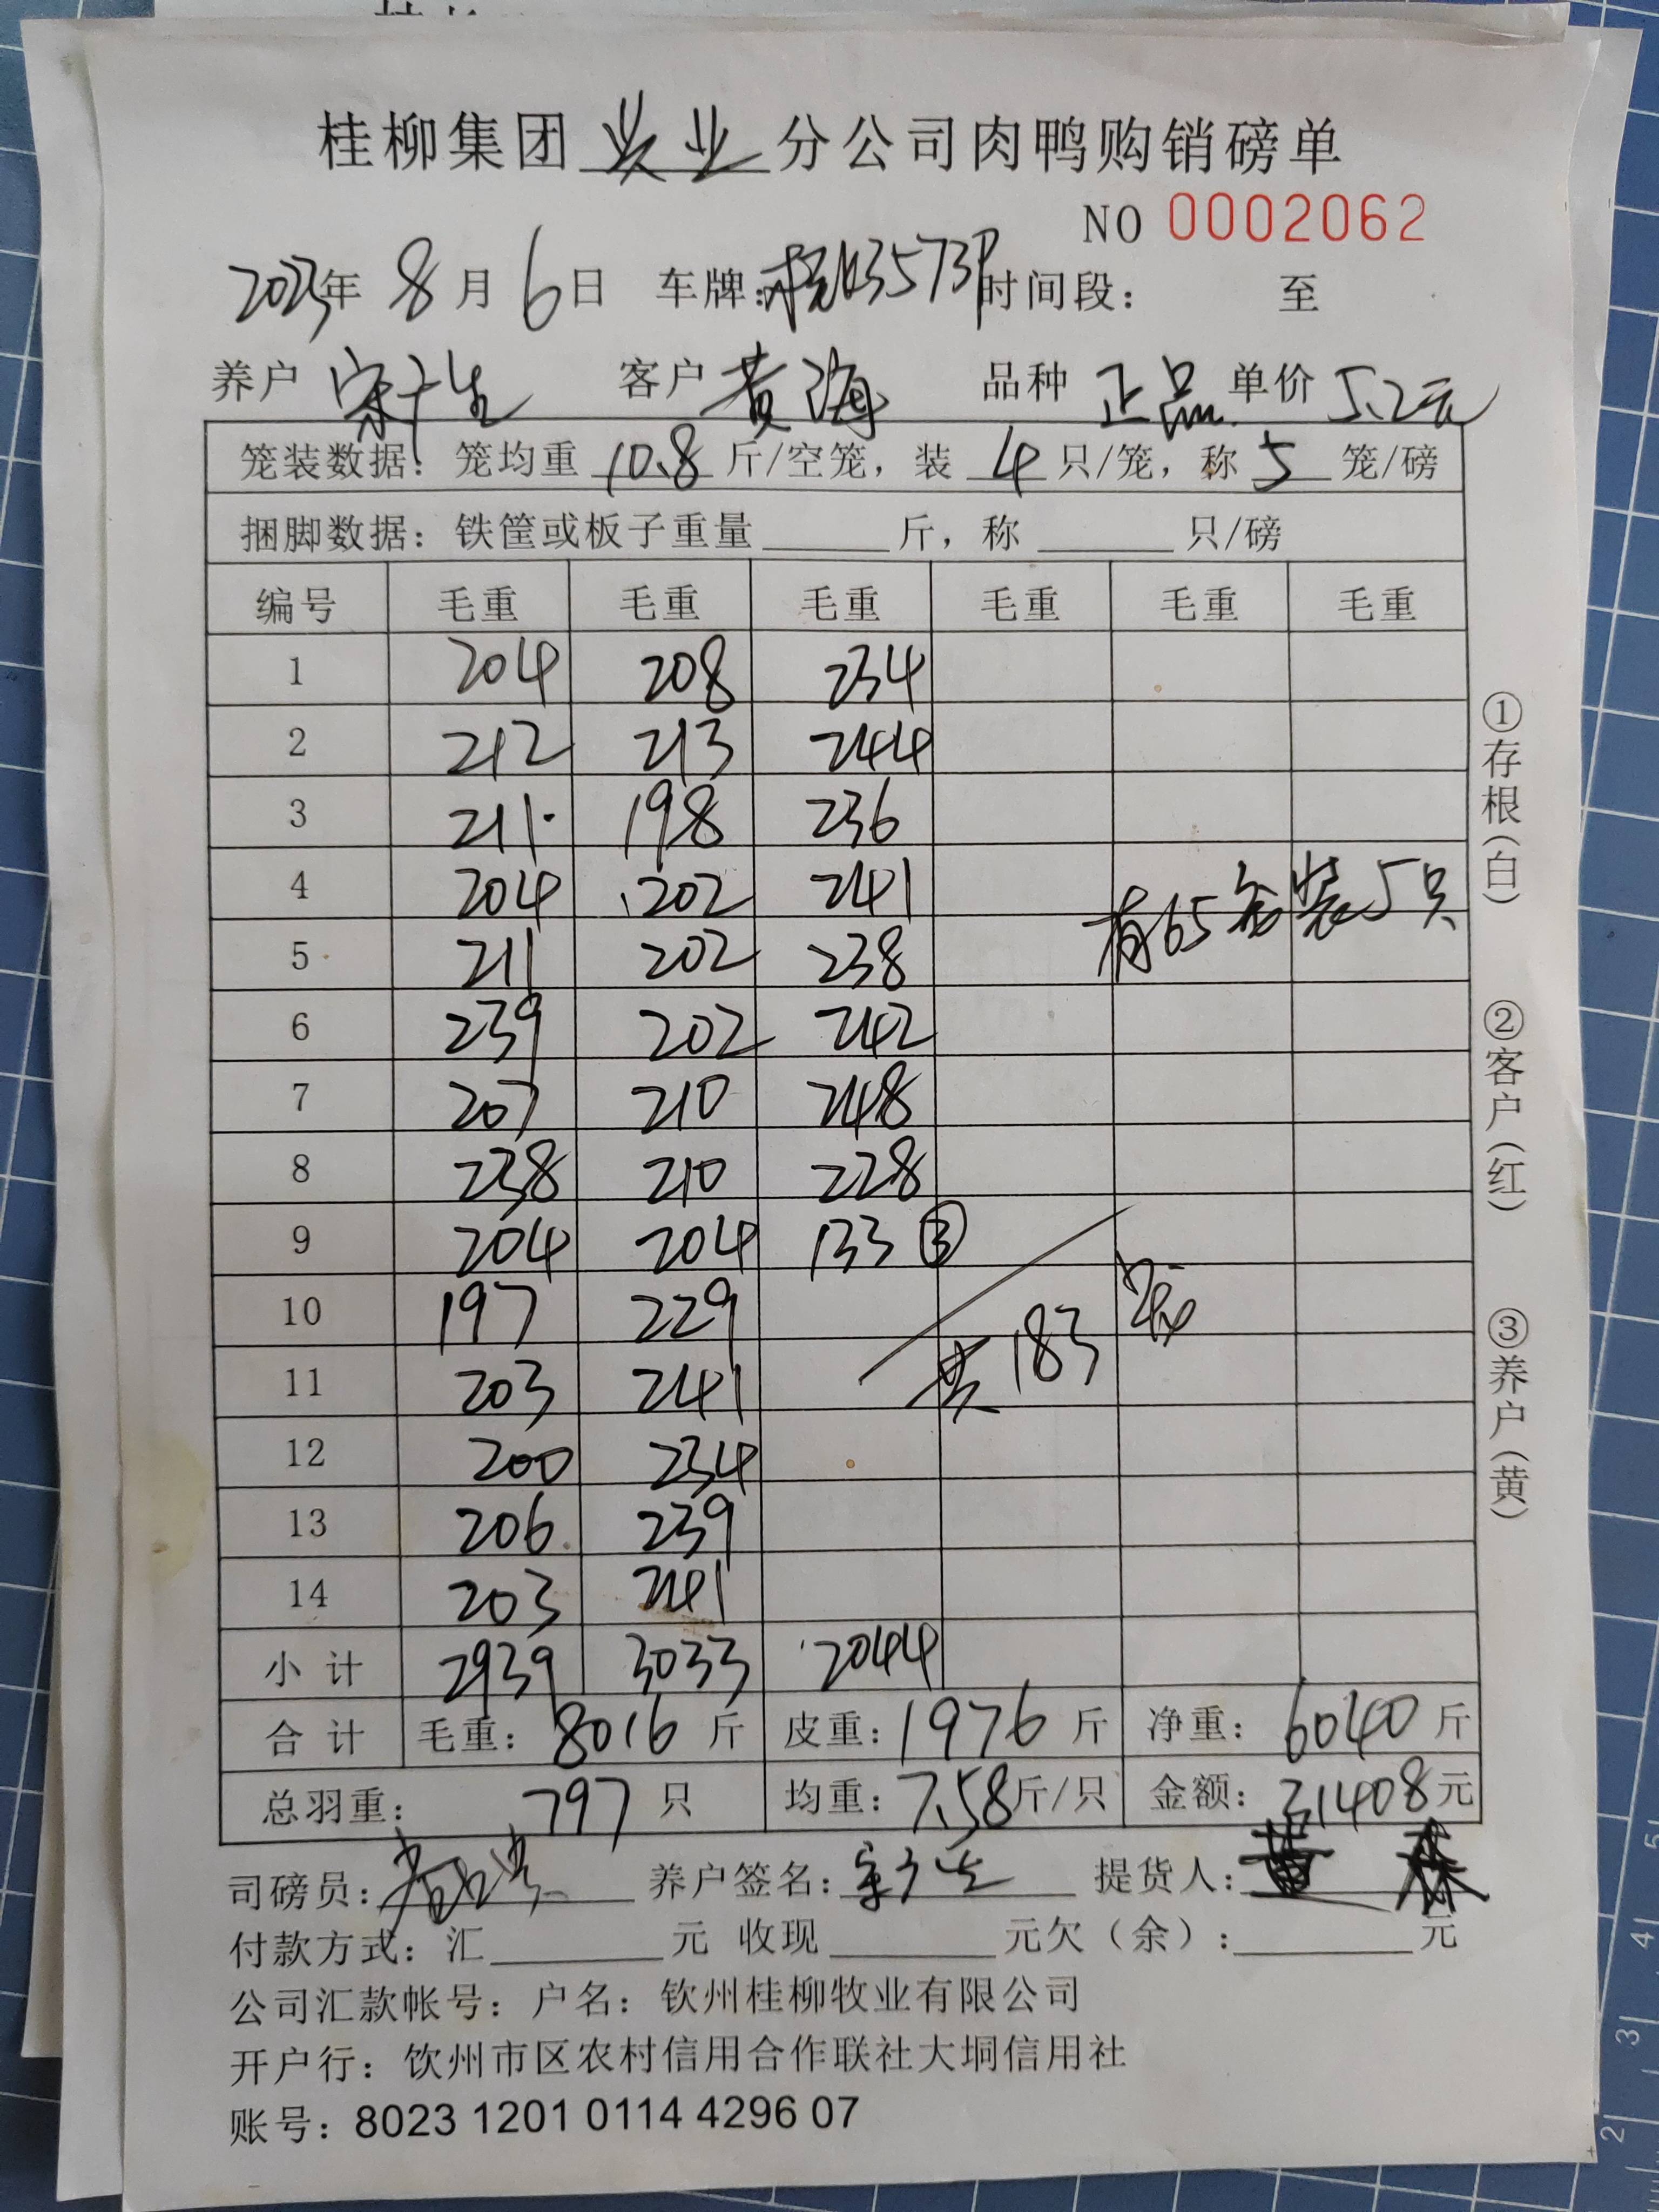 桂柳集团 业 分公司肉鸭购销磅单
NO 0002062
2023年 8月 6日 车牌: 3573 时间段： 至
养户 宋 生 客户 黄海 品种 正品 单价 5.2元
笼装数据：笼均重 10.8 斤/空笼，装 4 只/笼，称 5 笼/磅
捆脚数据：铁筐或板子重量 斤，称 只/磅
编号 毛重 毛重 毛重 毛重 毛重 毛重
1 204 208 234
2 212 213 244
3 211 198 236
4 204 202 241
5 211 202 238
6 239 202 242
7 207 210 248
8 238 210 228
9 204 204 133 ③
10 197 229
11 203 241
12 200 234
13 206 239
14 203 241
有65 装5只
共183
小计 2939 3033 2044
合计 毛重：8016斤 皮重：1976斤 净重：6040斤
总羽重： 797 只 均重：7.58斤/只 金额：31408元
司磅员： 养户签名： 提货人：
付款方式：汇 元 收现 元欠（余）： 元
公司汇款帐号：户名：钦州桂柳牧业有限公司
开户行：饮州市区农村信用合作联社大垌信用社
账号：8023 1201 0114 4296 07
①存根（白）
②客户（红）
③养户（黄）
5
4
3
2